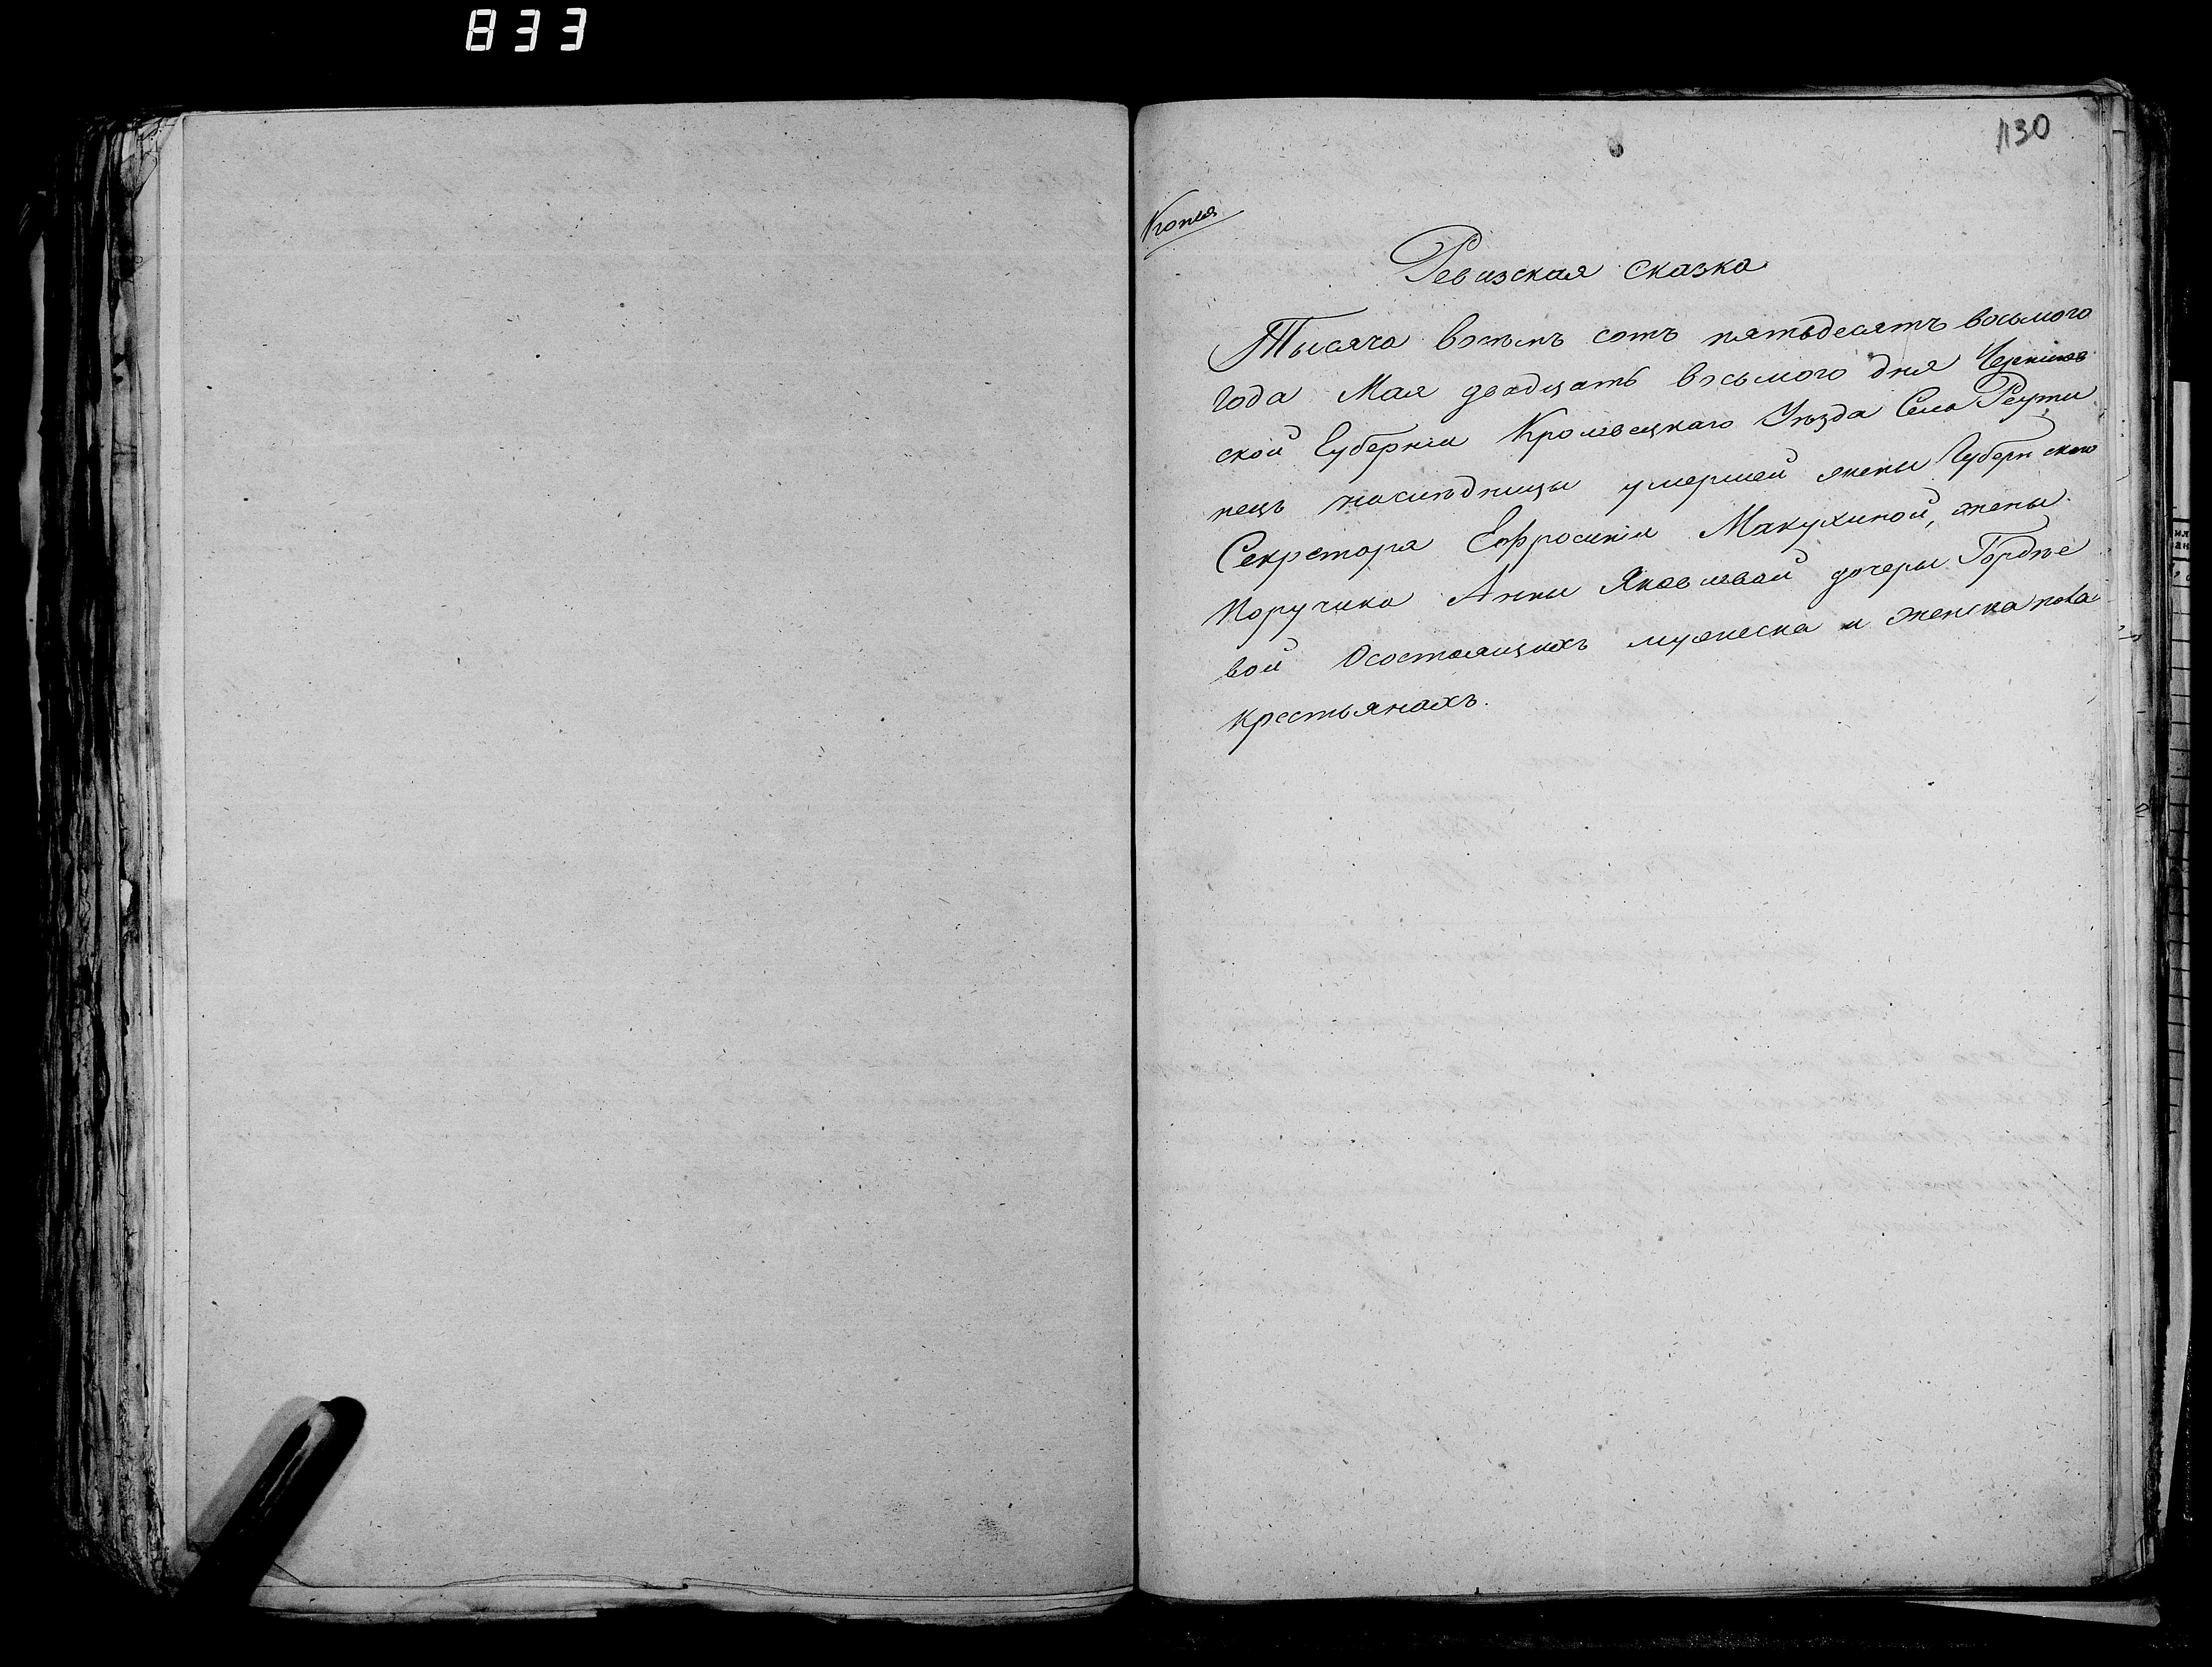 833
1130
Копия
Ревизская сказка
Тысяча восемъ сотъ пятьдесятъ восьмого
года Мая двадцать восьмого дня Чернигов
ской Губерніи Кролевецкаго Уѣзда Села Реути
нецъ наслѣдницы умершей жены Губернскаго
Секретаря Ефросиніи Макухиной, жены
Поручика Анны Яковлевой дочери Гордѣе
вой Осостоящихъ мужеска и женска пола
крестьянахъ.